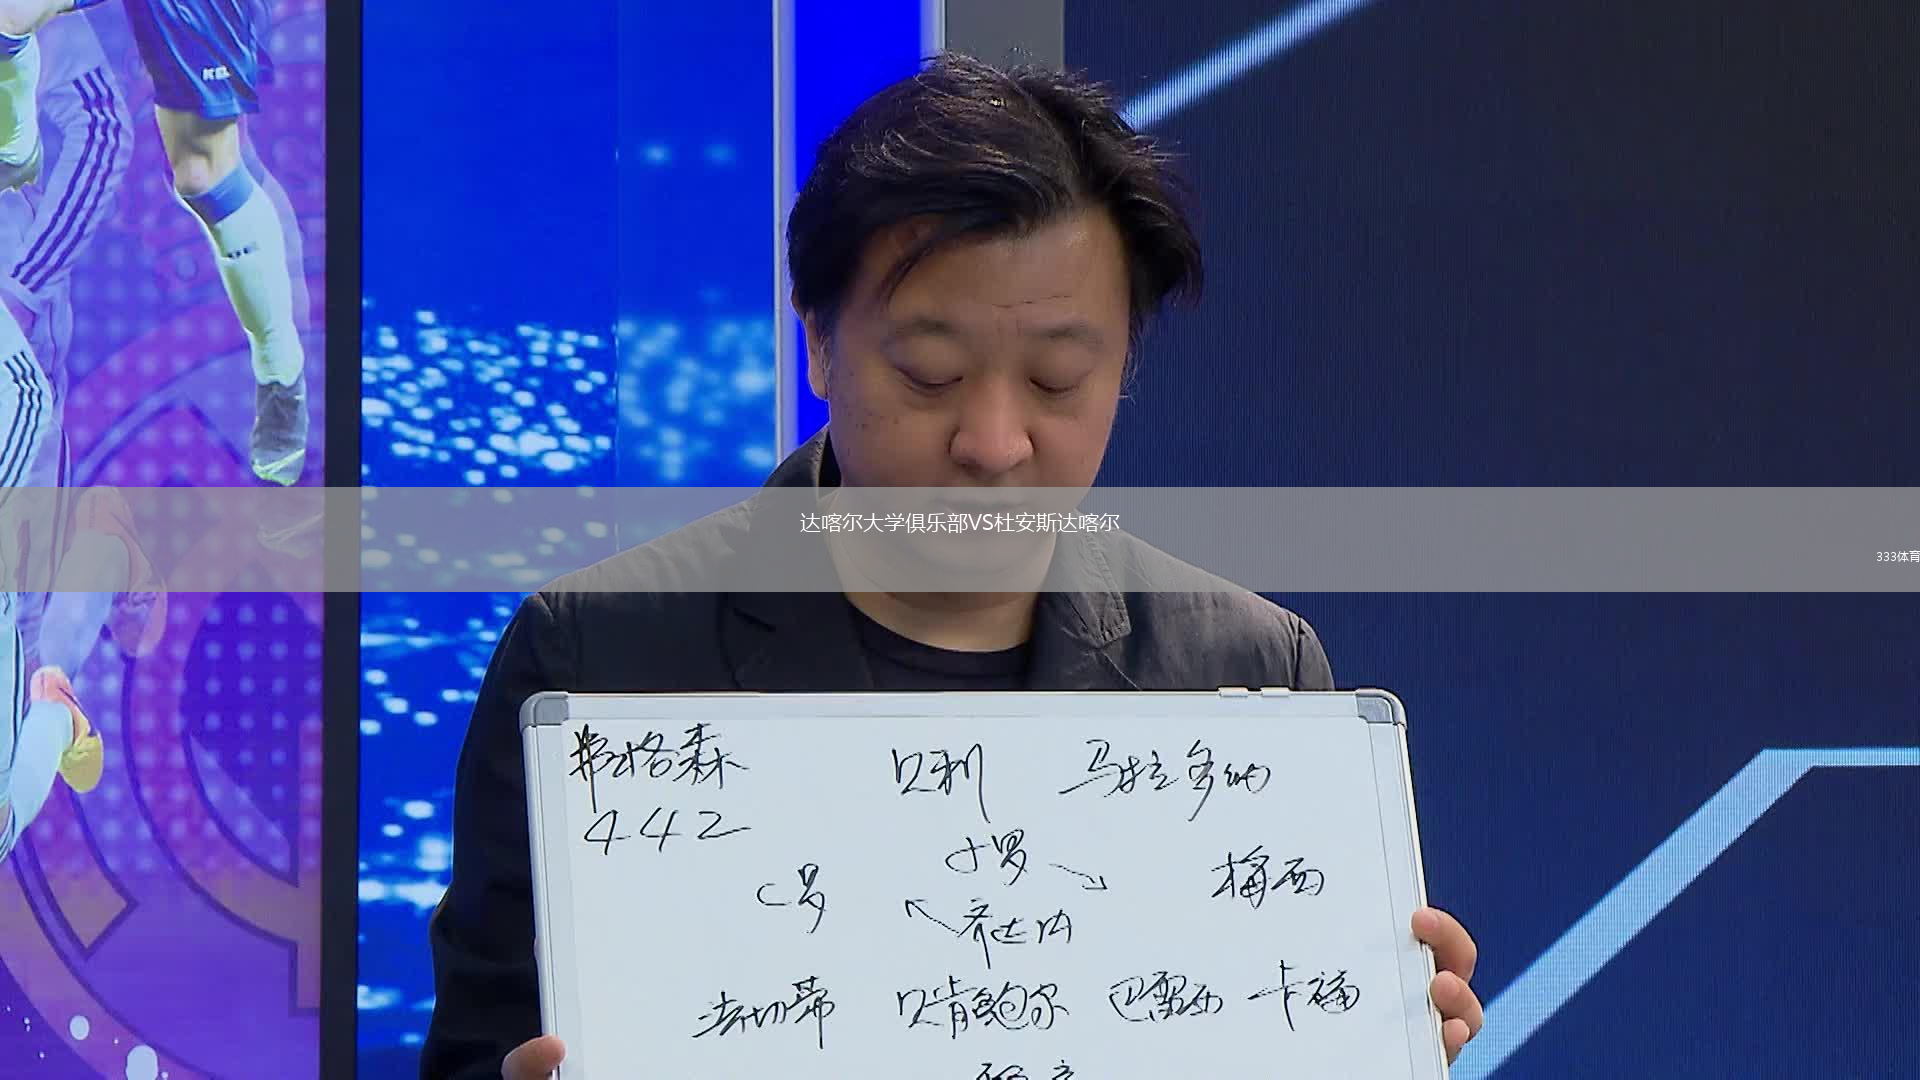 达喀尔大学俱乐部VS杜安斯达喀尔
333体育
弗格森 贝利 马拉多纳
442
小罗
C罗 梅西
齐达内
法切蒂 贝肯鲍尔 巴雷西 卡福